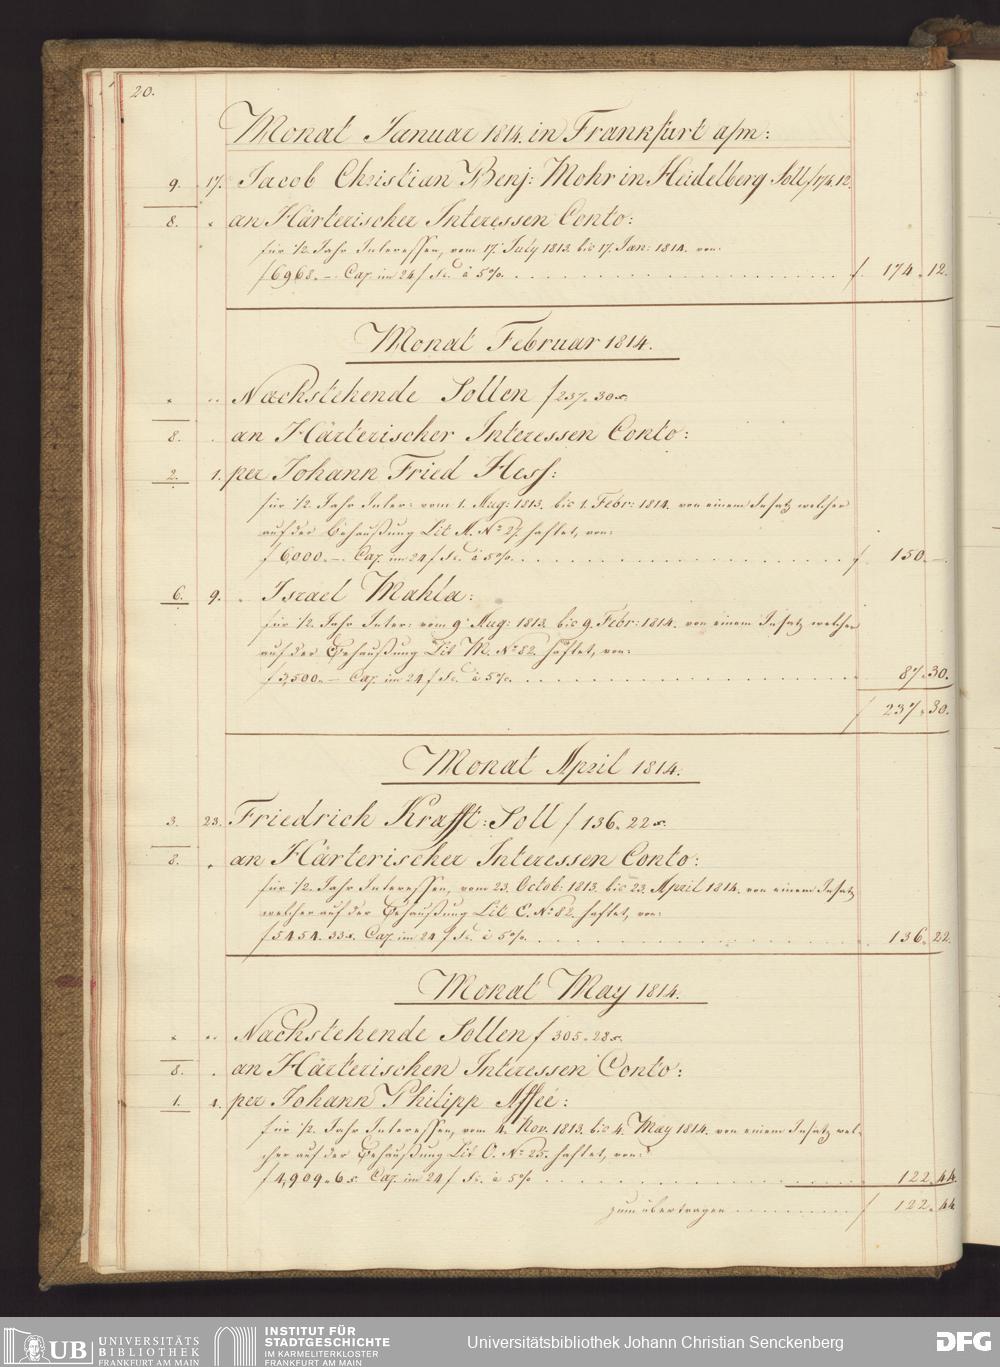 20.
Monat Januar 1814. in Frankfurt a/m:
9. 17. Jacob Christian Benj: Mohr in Heidelberg Soll f 174.12.
8. „ an Härterischer Interessen Conto:
für 1/2. Jahr Interessen, vom 17. July 1813. bis 17. Jan: 1814. von:
f 6968. – Cap. im 24 f à 5 %. f. 174. 12.
Monat Februar 1814.
„ „ Nachstehende Sollen f 237. 30 x.
8. . an Härterischer Interessen Conto:
2. 1. per Johann Fried Hess:
für 1/2. Jahr Inter: vom 1. Aug: 1813. bis 1. Febr: 1814. von einem Insatz welcher
auf der Behaußung Lit M. No 27. haftet, von:
f 6,000. – Cap. im 24 f à 5 %. f. 150. –.
6. 9. „ Israel Mahla:
für 1/2. Jahr Inter: vom 9. Aug: 1813. bis 9. Febr: 1814. von einem Insatz welcher
auf der Behaußung Lit M. No 82. haftet, von:
f 3,500. – Cap. im 24 f à 5 %. 87. 30.
f 237. 30.
Monat April 1814.
3. 23. Friedrich Krafft: Soll f 136. 22 x.
8. „ an Härterischer Interessen Conto:
für 1/2. Jahr Interessen, vom 23. Octob: 1813. bis 23. April 1814. von einem Insatz
welcher auf der Behaußung Lit E. No 82. haftet, von:
f 5454. 33 x. Cap. im 24 f à 5 %. 136. 22.
Monat May 1814.
„ „ Nachstehende Sollen f 305. 28 x.
8. . an Härterischen Interessen Conto:
1. 4. per Johann Philipp Affée:
für 1/2. Jahr Interessen, vom 4. Nov. 1813. bis 4. May 1814. von einem Insatz wel-
cher auf der Behaußung Lit O. No 25. haftet, von:
f 4,909. 6 x. Cap. im 24 f à 5 % 122. 44.
zum übertragen f 122. 44
UB UNIVERSITÄTS
BIBLIOTHEK
FRANKFURT AM MAIN
INSTITUT FÜR
STADTGESCHICHTE
IM KARMELITERKLOSTER
FRANKFURT AM MAIN
Universitätsbibliothek Johann Christian Senckenberg
DFG